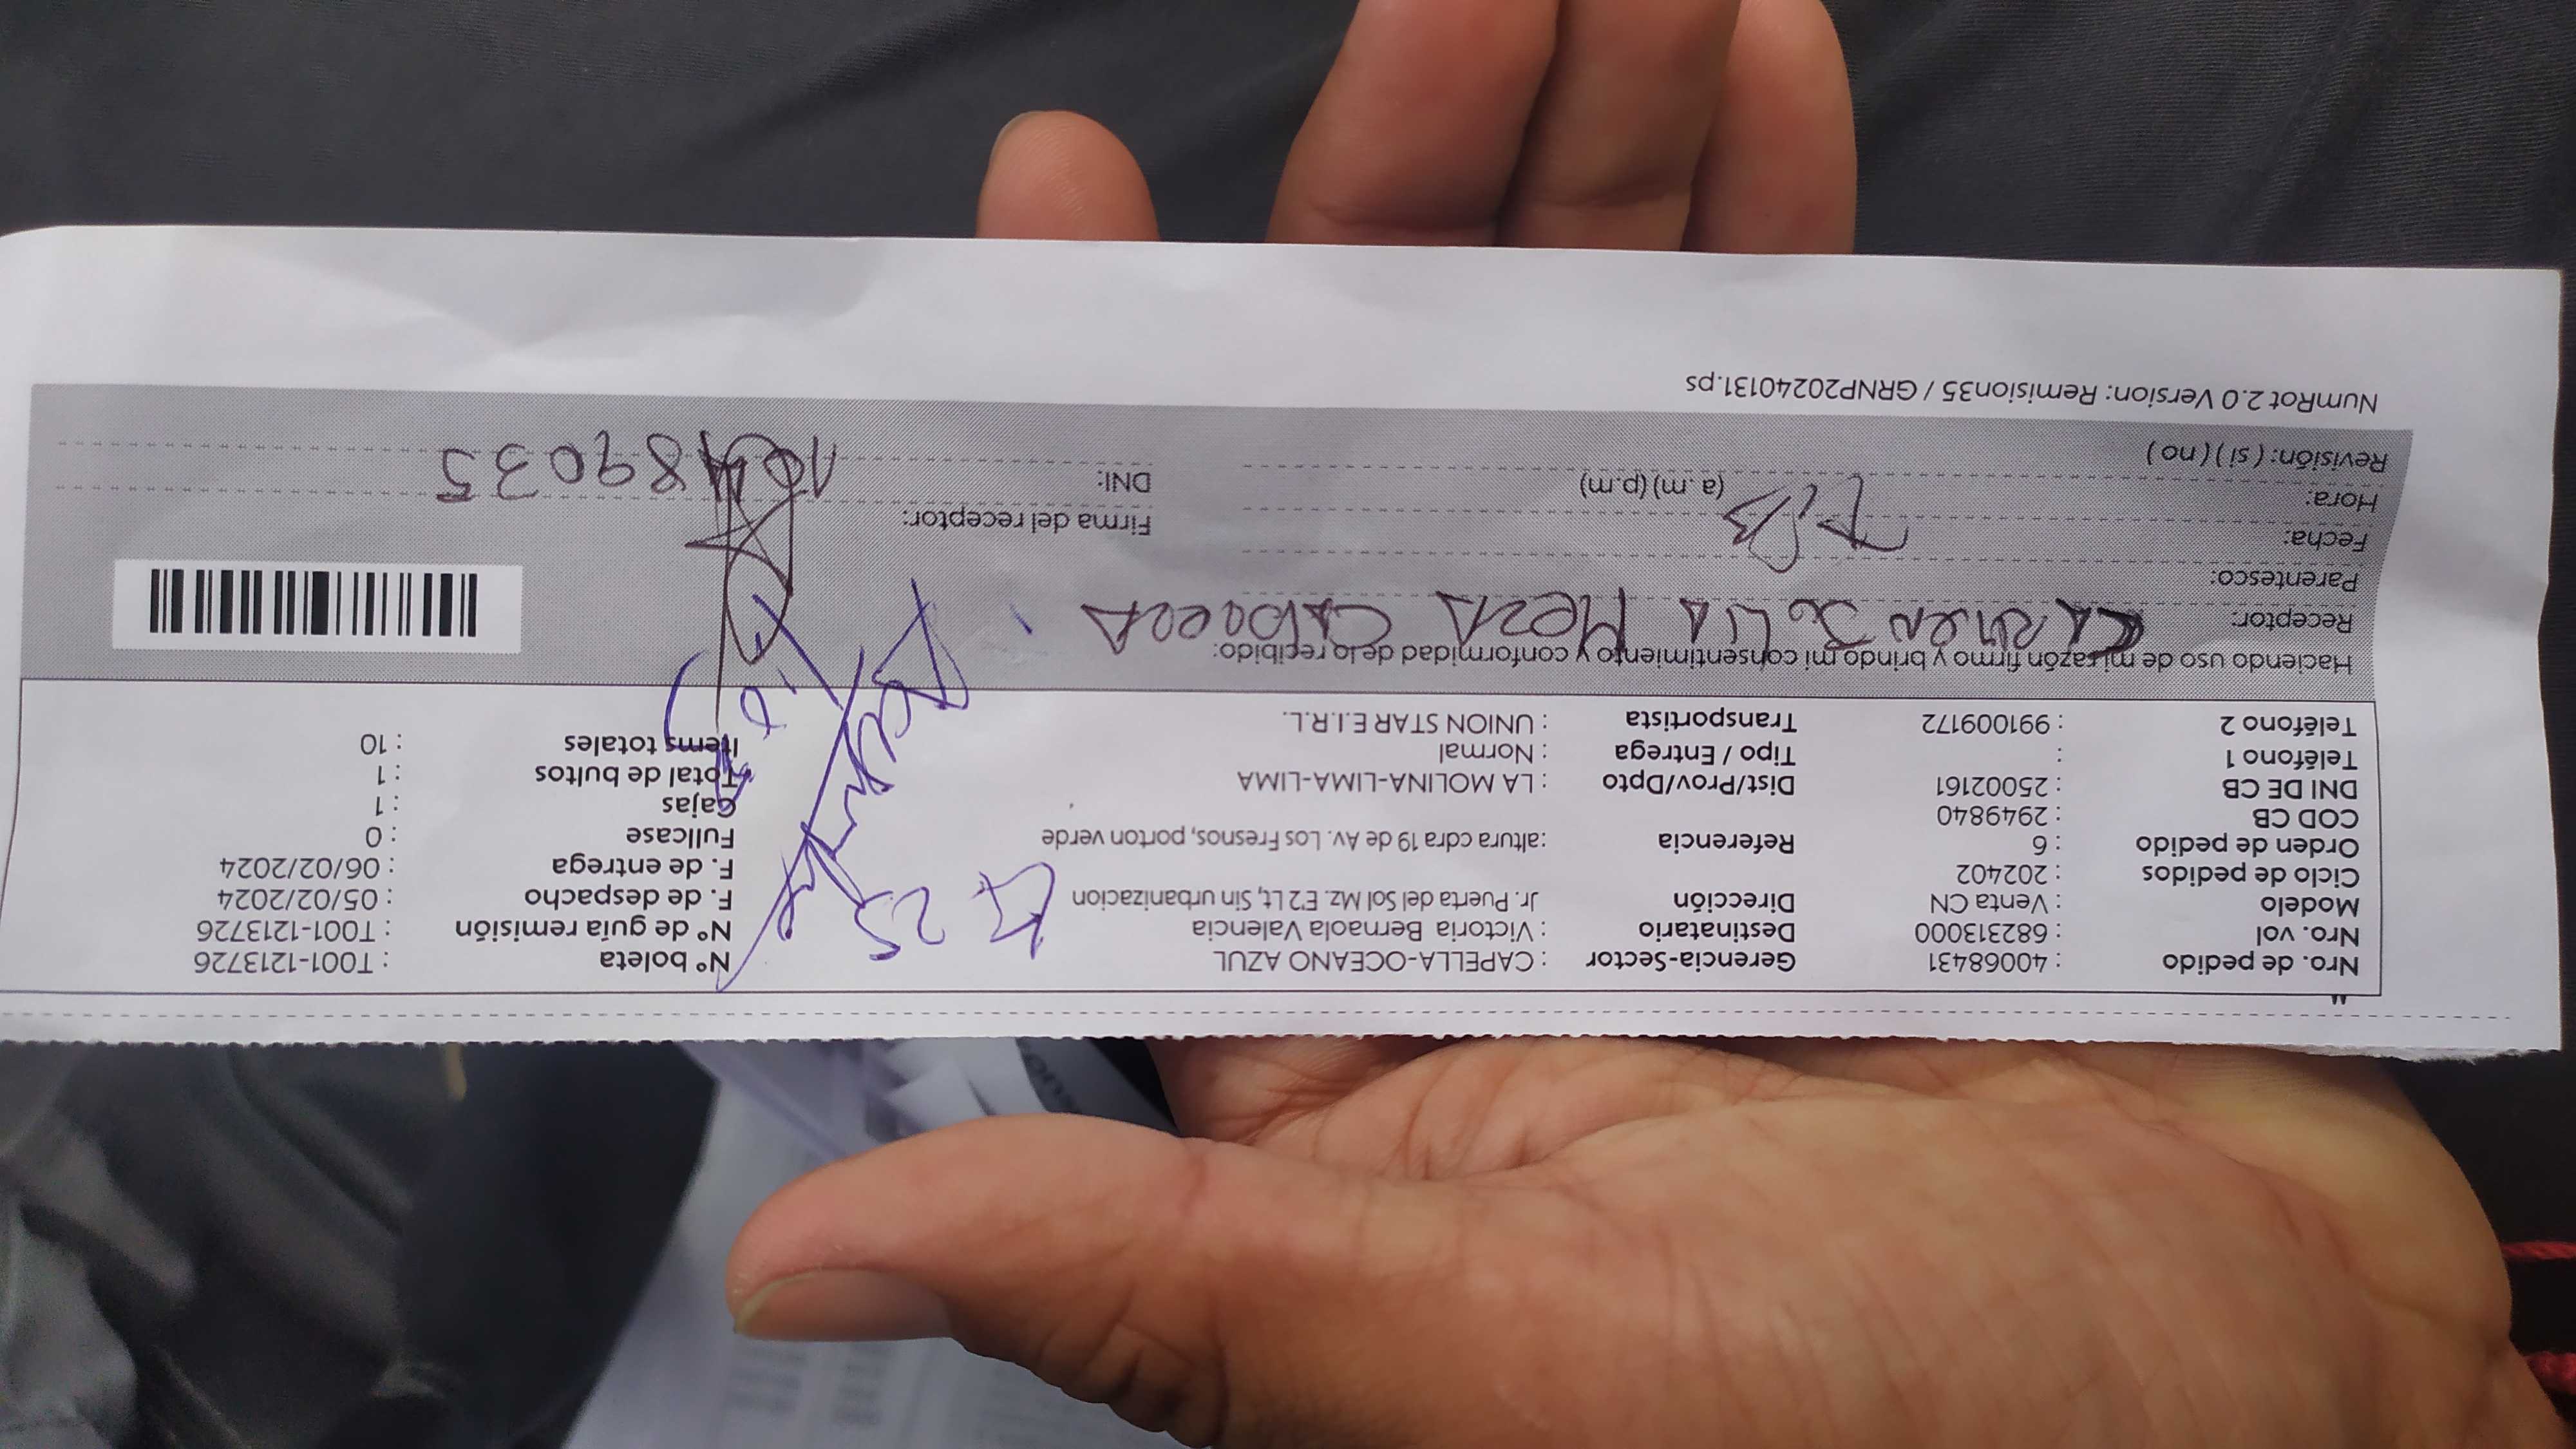 Nro. de pedido : 40068431 Gerencia-Sector : CAPELLA-OCEANO AZUL Nº boleta : T001-1213726
Nro. vol : 682313000 Destinatario : Victoria Bernaola Valencia Nº de guía remisión : T001-1213726
Modelo : Venta CN Dirección Jr. Puerta del Sol Mz. E2 Lt, Sin urbanizacion Lt 25 F. de despacho : 05/02/2024
Ciclo de pedidos : 202402 F. de entrega : 06/02/2024
Orden de pedido : 6 Referencia :altura cdra 19 de Av. Los Fresnos, porton verde Fullcase : 0
COD CB : 2949840 Cajas : 1
DNI DE CB : 25002161 Dist/Prov/Dpto : LA MOLINA-LIMA-LIMA Total de bultos : 1
Teléfono 1 : Tipo / Entrega : Normal Items totales : 10
Teléfono 2 : 991009172 Transportista : UNION STAR E.I.R.L.
Haciendo uso de mi razón firmo y brindo mi consentimiento y conformidad de lo recibido:
Receptor: CARMEN JULIA MEZA
Parentesco:
Fecha: Firma del receptor:
Hora: (a. m) (p.m) DNI:
Revisión: ( si ) ( no )
NumRot 2.0 Version: Remision35 / GRNP20240131.ps